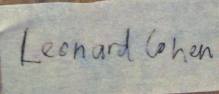 Leonard Cohen